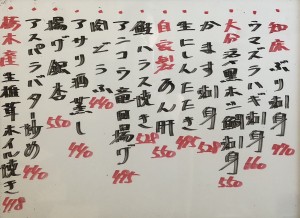 知床ぶり刺身 770
ウマズラハギ刺身 660
大分活〆黒木ノ鯛刺身 550
かます刺身 528
生にしんたたき 495
自家製あん肝
鮭ハラス焼き 528
アンコウ竜田揚げ 495
肉どうふ 440
アサリ酒蒸し 440
揚げ銀杏 550
アスパラバター炒め 440
栃木産生椎茸ホイル焼き 418